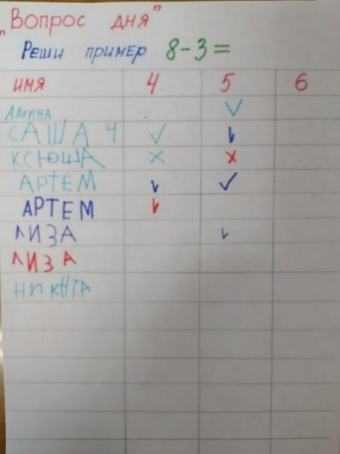 "Вопрос дня"
Реши пример 8-3=
ИМЯ 4 5 6
АМИНА
САША Ч
КСЮША
АРТЁМ
АРТЕМ
ЛИЗА
ЛИЗА
НИКИТА